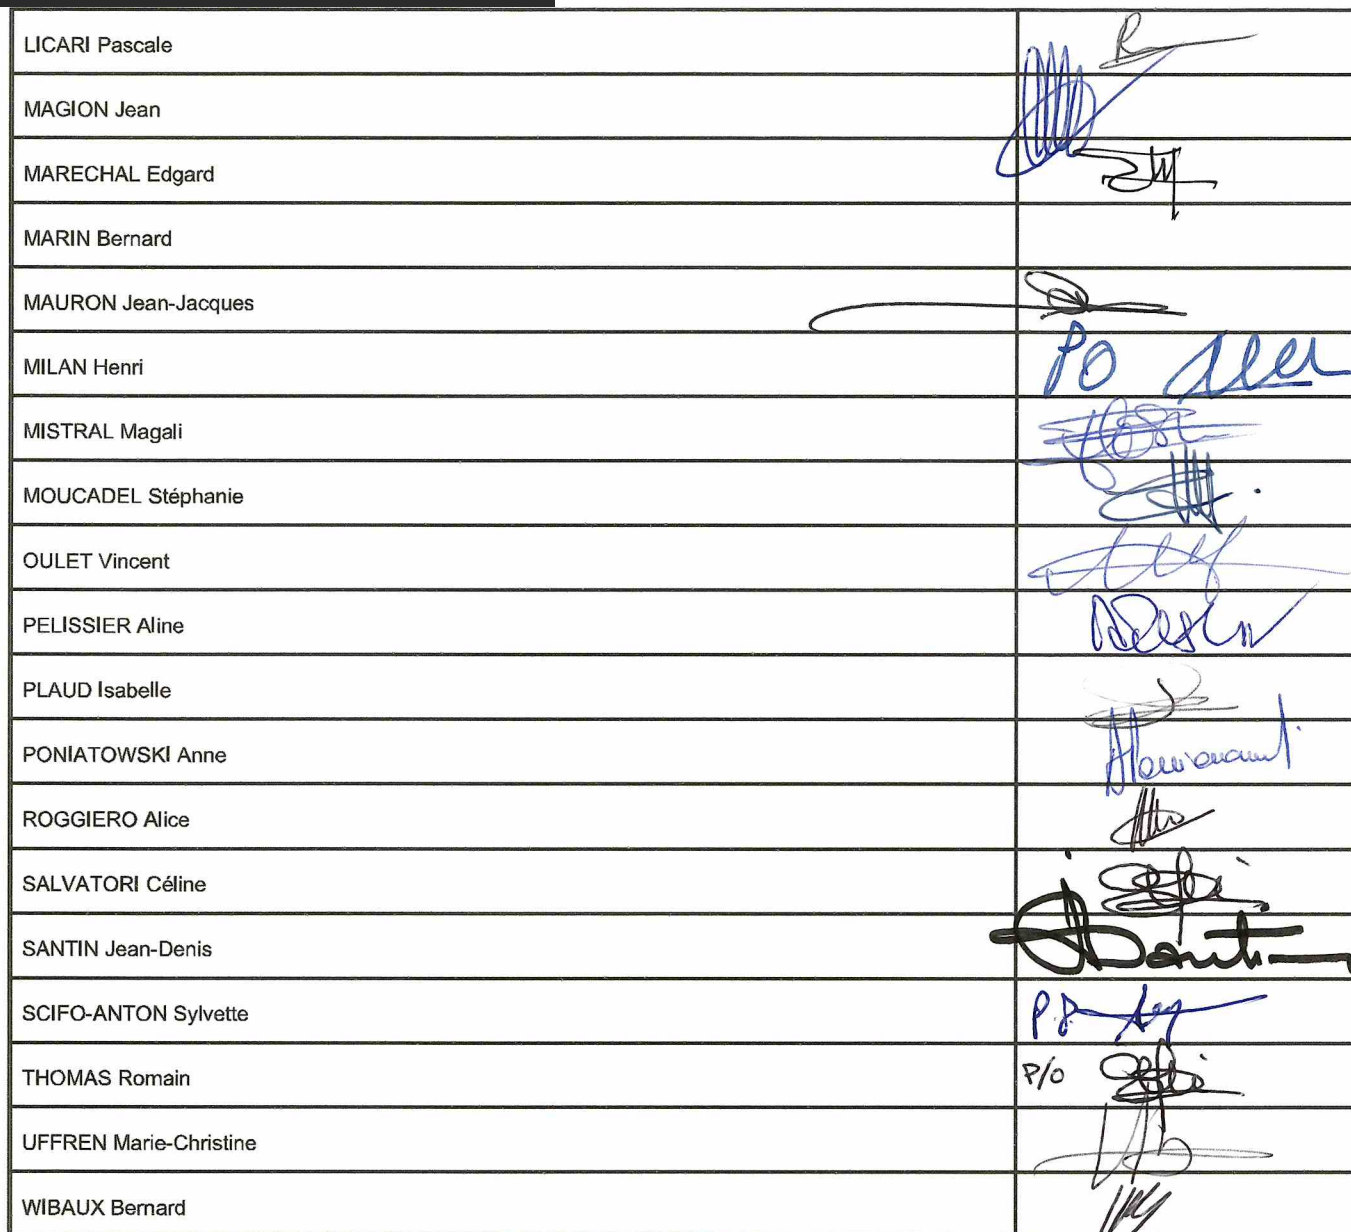 LICARI Pascale
MAGION Jean
MARECHAL Edgard
MARIN Bernard
MAURON Jean-Jacques
MILAN Henri
PO
MISTRAL Magali
MOUCADEL Stéphanie
OULET Vincent
PELISSIER Aline
PLAUD Isabelle
PONIATOWSKI Anne
ROGGIERO Alice
SALVATORI Céline
SANTIN Jean-Denis
Santin
SCIFO-ANTON Sylvette
THOMAS Romain
P/O
UFFREN Marie-Christine
WIBAUX Bernard